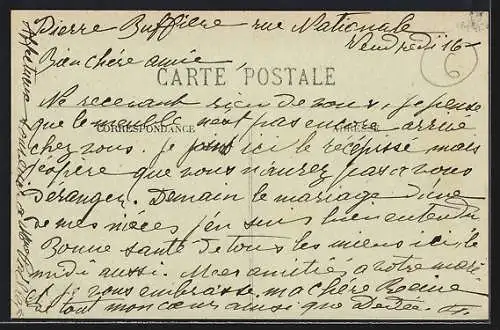 Pierre Buffière rue Nationale
Vendredi 16
Bien chère amie
CARTE POSTALE
Ne recevant rien de vous, je pense
que le meuble n'est pas encore arrivé
CORRESPONDANCE
ADRESSE
chez vous. Je joins ici le récépissé mais
j'espère que vous n'aurez pas à vous
déranger. Demain le mariage d'une
de mes nièces j'en suis bien entendu
Bonne santé de tous les miens ici, le
midi aussi. Mes amitiés à votre mari
je vous embrasse ma chère
de tout mon cœur ainsi que Dédée.
6